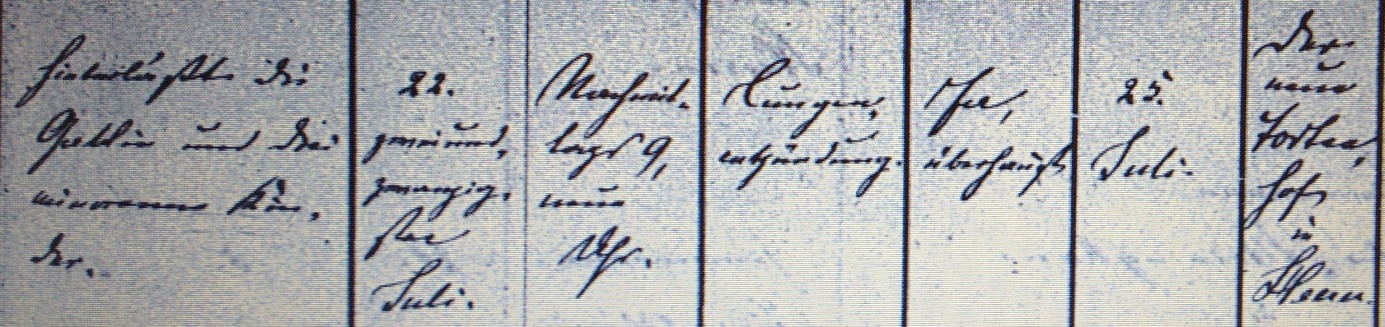 hinterläßt die
Gattin und drei
minorenne Kin,
der.
22.
zweiund,
zwanzig,
ster
Juli.
Nachmit,
tags 9,
neun
Uhr.
Lungen,
entzündung.
überhaupt
25.
Juli.
Der
neue
Todten,
hof
in